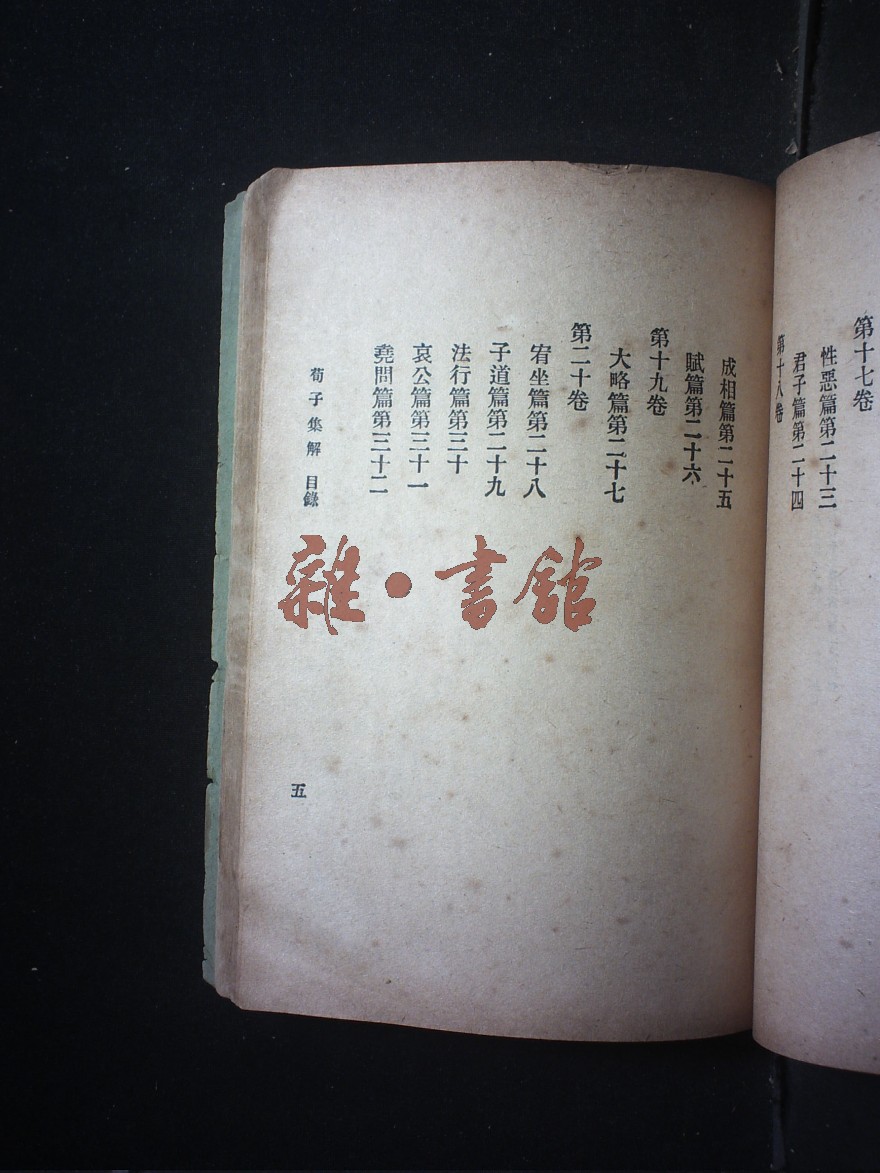 第十七卷
性惡篇第二十三
君子篇第二十四
第十八卷
成相篇第二十五
賦篇第二十六
第十九卷
大略篇第二十七
第二十卷
宥坐篇第二十八
子道篇第二十九
法行篇第三十
哀公篇第三十一
堯問篇第三十二
荀子集解 目錄
五
雜·書館